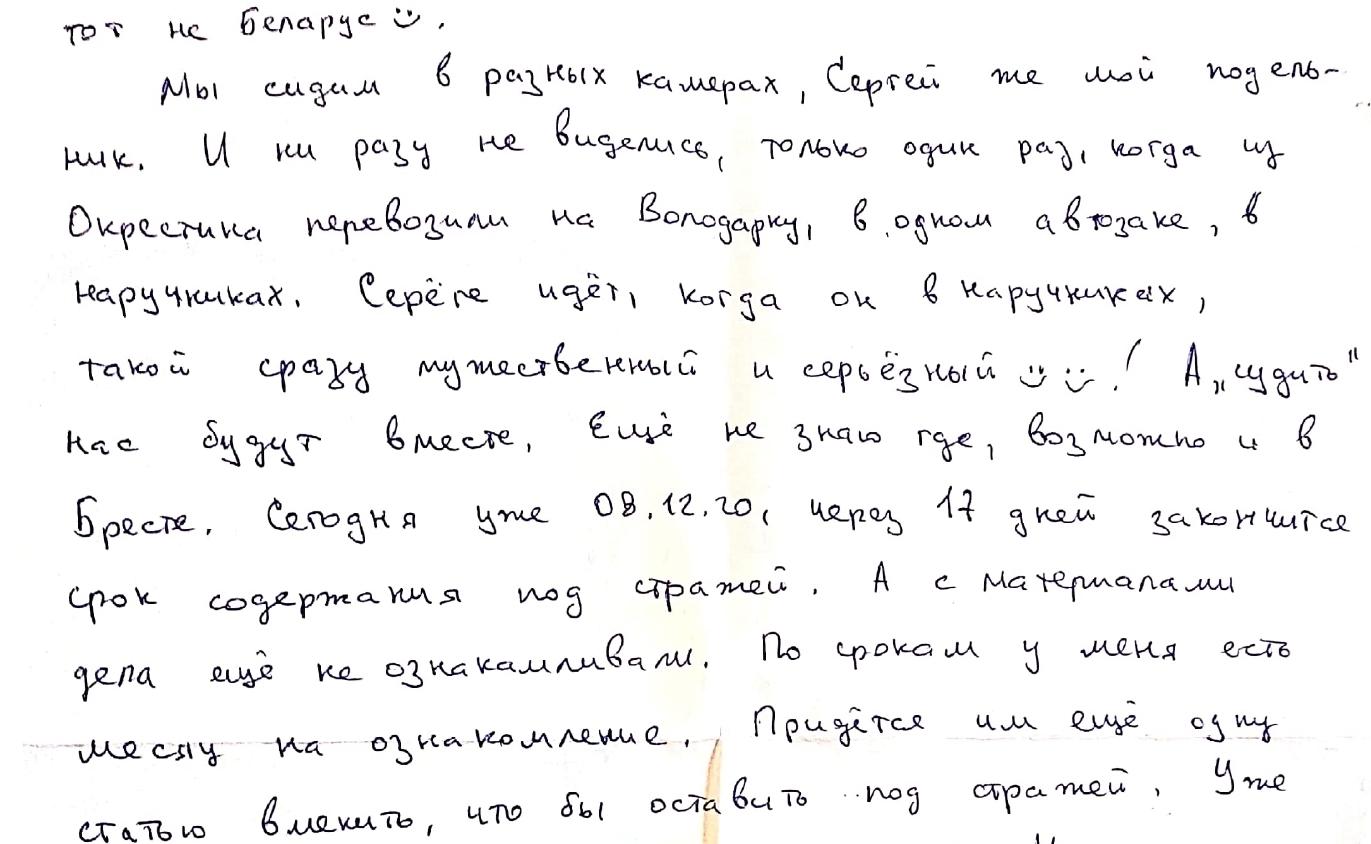 тот не беларус☺.
Мы сидим в разных камерах, Сергей же мой подель-
ник. И ни разу не виделись, только один раз, когда из
Окрестина перевозили на Володарку, в одном автозаке, в
наручниках. Серёге идёт, когда он в наручниках,
такой сразу мужественный и серьёзный ☺☺! А „судить"
нас будут вместе. Ещё не знаю где, возможно и в
Бресте. Сегодня уже 08.12.20, через 17 дней закончится
срок содержания под стражей. А с материалами
дела ещё не ознакамливали. По срокам у меня есть
месяц на ознакомление. Придётся им ещё одну
статью вменить, что бы оставить под стражей. Уже